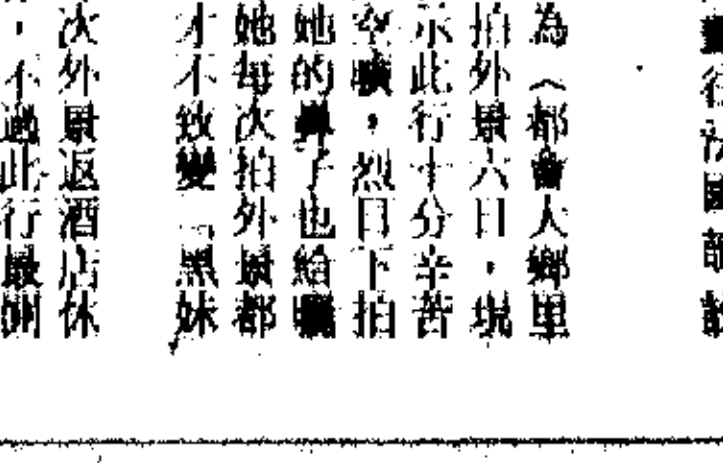 為《都會人鄉里
拍外景六日，現
示此行十分辛苦
空曠，烈日下拍
她的鼻子也給曬
她每次拍外景都
才不致變「黑妹
次外景返酒店休
，不過此行最開